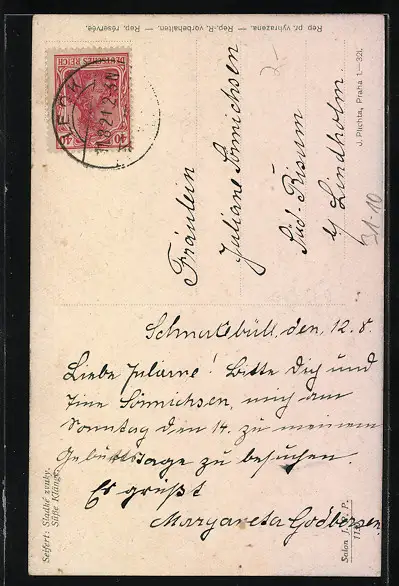 Rep. pr. vyhrazena. — Rep.-R. vorbehalten. — Rep. réservée.
J. Plichta, Praha I.—321.
DEUTSCHES REICH
40
Fräulein
Juliane Sönnichsen
Süd-Risum
b/ Lindholm.
31-10
Schnatebüll, den, 12.8.
Liebe Juliane! Bitte Dich und
Tine Sönnichsen, mich am
Sonntag den 14. zu meinem
Geburtstage zu besuchen.
Es grüßt
Margareta Godbersen.
Seifert: Sladké zvuky.
Süße Klänge.
Salon J. P. P.